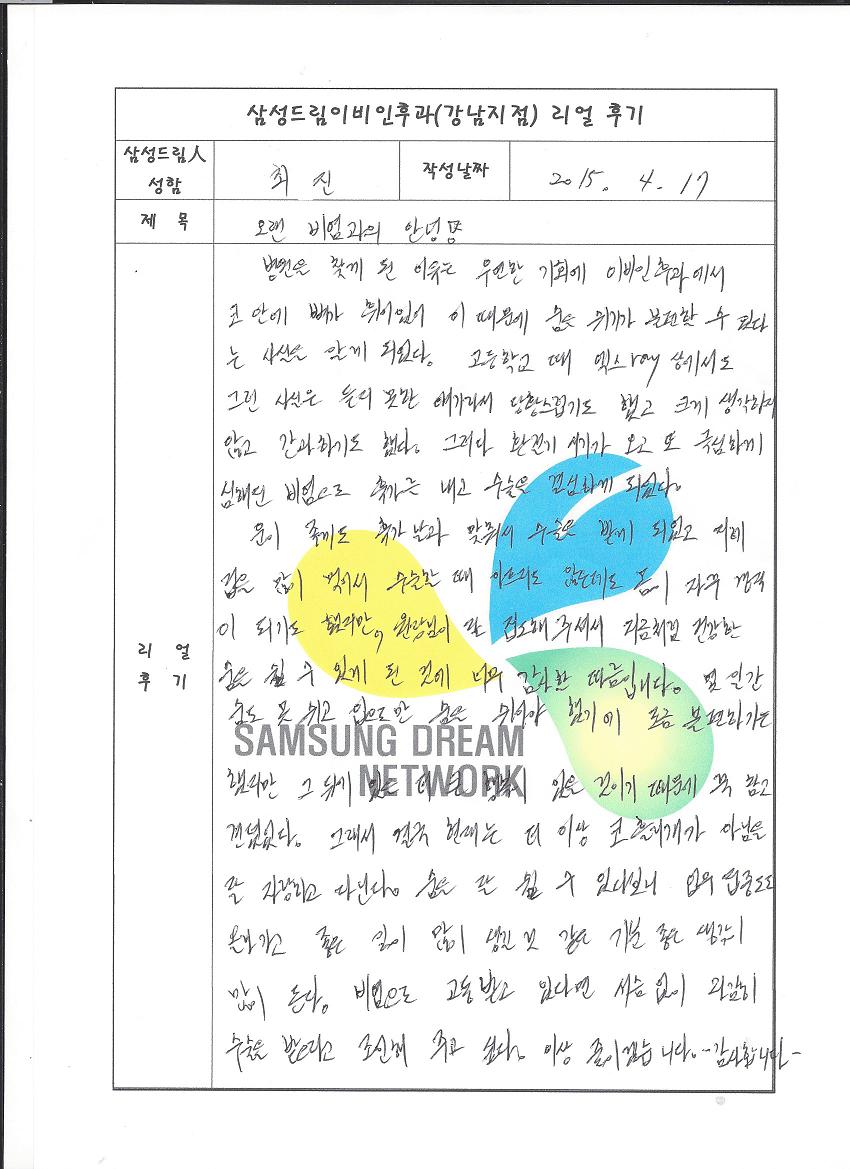 삼성드림이비인후과(강남지점) 리얼 후기
삼성드림人 성함
최 진
작성날짜
2015. 4. 17
제 목
오랜 비염과의 안녕
리 얼 후 기
병원을 찾게 된 이유는 우연한 기회에 이비인후과에서
코 안에 뼈가 휘어있어 이 때문에 숨을 쉬기가 불편할 수 있다
는 사실을 알게 되었다. 고등학교 때 엑스ray 상에서도
그런 사실은 듣지 못한 얘기라서 당황스럽기도 했고 크게 생각하지
않고 간과하기도 했다. 그러다 환절기 시기가 오고 또 극심하게
심해진 비염으로 휴가를 내고 수술을 결심하게 되었다.
운이 좋게도 휴가 날과 맞춰서 수술을 받게 되었고
겁을 많이 먹어서 수술할 때 아프지도 않은데도 몸이 자꾸 경직
이 되기도 했지만, 원장님이 잘 집도해 주셔서 지금처럼 건강한
숨을 쉴 수 있게 된 것에 너무 감사한 마음입니다. 몇 일간
숨도 못 쉬고 입으로만 숨을 쉬어야 했기에 조금 불편하기는
했지만 그 뒤에 있는 더 큰 행복이 있을 것이기 때문에 꾹 참고
견뎠었다. 그래서 결국 현재는 더 이상 코흘리개가 아님을
잘 자랑하고 다닌다. 숨을 잘 쉴 수 있다보니 업무 집중도도
올라가고 좋은 일이 많이 생긴 것 같은 기분 좋은 생각이
많이 든다. 비염으로 고통받고 있다면 서슴없이 과감히
수술을 받으라고 조언해 주고 싶다. 이상 줄이겠습니다. -감사합니다-
SAMSUNG DREAM
NETWORK